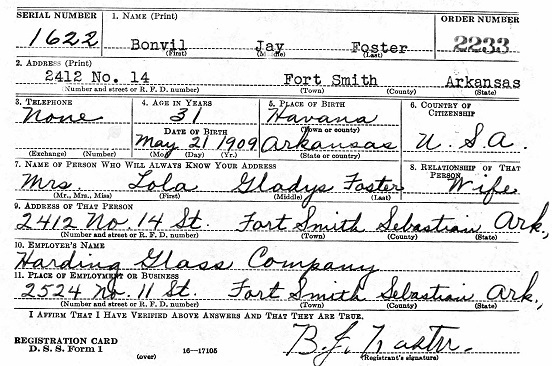 SERIAL NUMBER 1. NAME (Print) ORDER NUMBER
1622 Bonvil Jay Foster 2233
(First) (Middle) (Last)
2. ADDRESS (Print)
2412 No. 14 Fort Smith Arkansas
(Number and street or R. F. D. number) (Town) (County) (State)
3. TELEPHONE 4. AGE IN YEARS 5. PLACE OF BIRTH 6. COUNTRY OF CITIZENSHIP
None 31 Havana
DATE OF BIRTH (Town or county)
May 21 1909 Arkansas U.S.A.
(Exchange) (Number) (Mo.) (Day) (Yr.) (State or country)
7. NAME OF PERSON WHO WILL ALWAYS KNOW YOUR ADDRESS 8. RELATIONSHIP OF THAT PERSON
Mrs. Lola Gladys Foster Wife
(Mr., Mrs., Miss) (First) (Middle) (Last)
9. ADDRESS OF THAT PERSON
2412 No. 14 St. Fort Smith Sebastian Ark.,
(Number and street or R. F. D. number) (Town) (County) (State)
10. EMPLOYER'S NAME
Harding Glass Company
11. PLACE OF EMPLOYMENT OR BUSINESS
2524 No. 11 St. Fort Smith Sebastian Ark.,
(Number and street or R. F. D. number) (Town) (County) (State)
I AFFIRM THAT I HAVE VERIFIED ABOVE ANSWERS AND THAT THEY ARE TRUE.
REGISTRATION CARD
D. S. S. Form 1 (over) 16—17105 B. J. Foster.
(Registrant's signature)